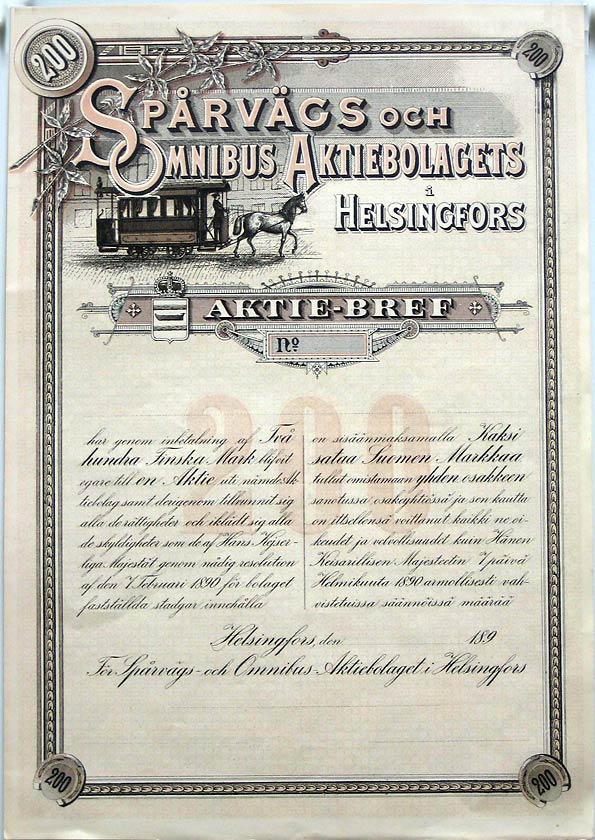 200
200
SPÅRVÄGS OCH
OMNIBUS AKTIEBOLAGETS
i
HELSINGFORS
AKTIE-BREF
No
200
har genom inbetalning af Två
hundra Finska Mark blifvit
egare till en Aktie uti nämde Ak-
tiebolag samt derigenom tillvunnit sig
alla de rättigheter och iklädt sig alla
de skyldigheter som de af Hans Kejser-
liga Majestät genom nådig resolution
af den 7 Februari 1890 för bolaget
fastställda stadgar innehålla
on sisäänmaksamalla Kaksi
sataa Suomen Markkaa
tullut omistamaan yhden osakkeen
sanotussa osakeyhtiössä ja sen kautta
on itsellensä voittanut kaikki ne oi-
keudet ja velvollisuudet kuin Hänen
Keisarillisen Majesteetin 7 päivä
Helmikuuta 1890 armollisesti vah-
vistetuissa säännöissä määrää
Helsingfors, den 189
För Spårvägs- och Omnibus-Aktiebolaget i Helsingfors
200
200